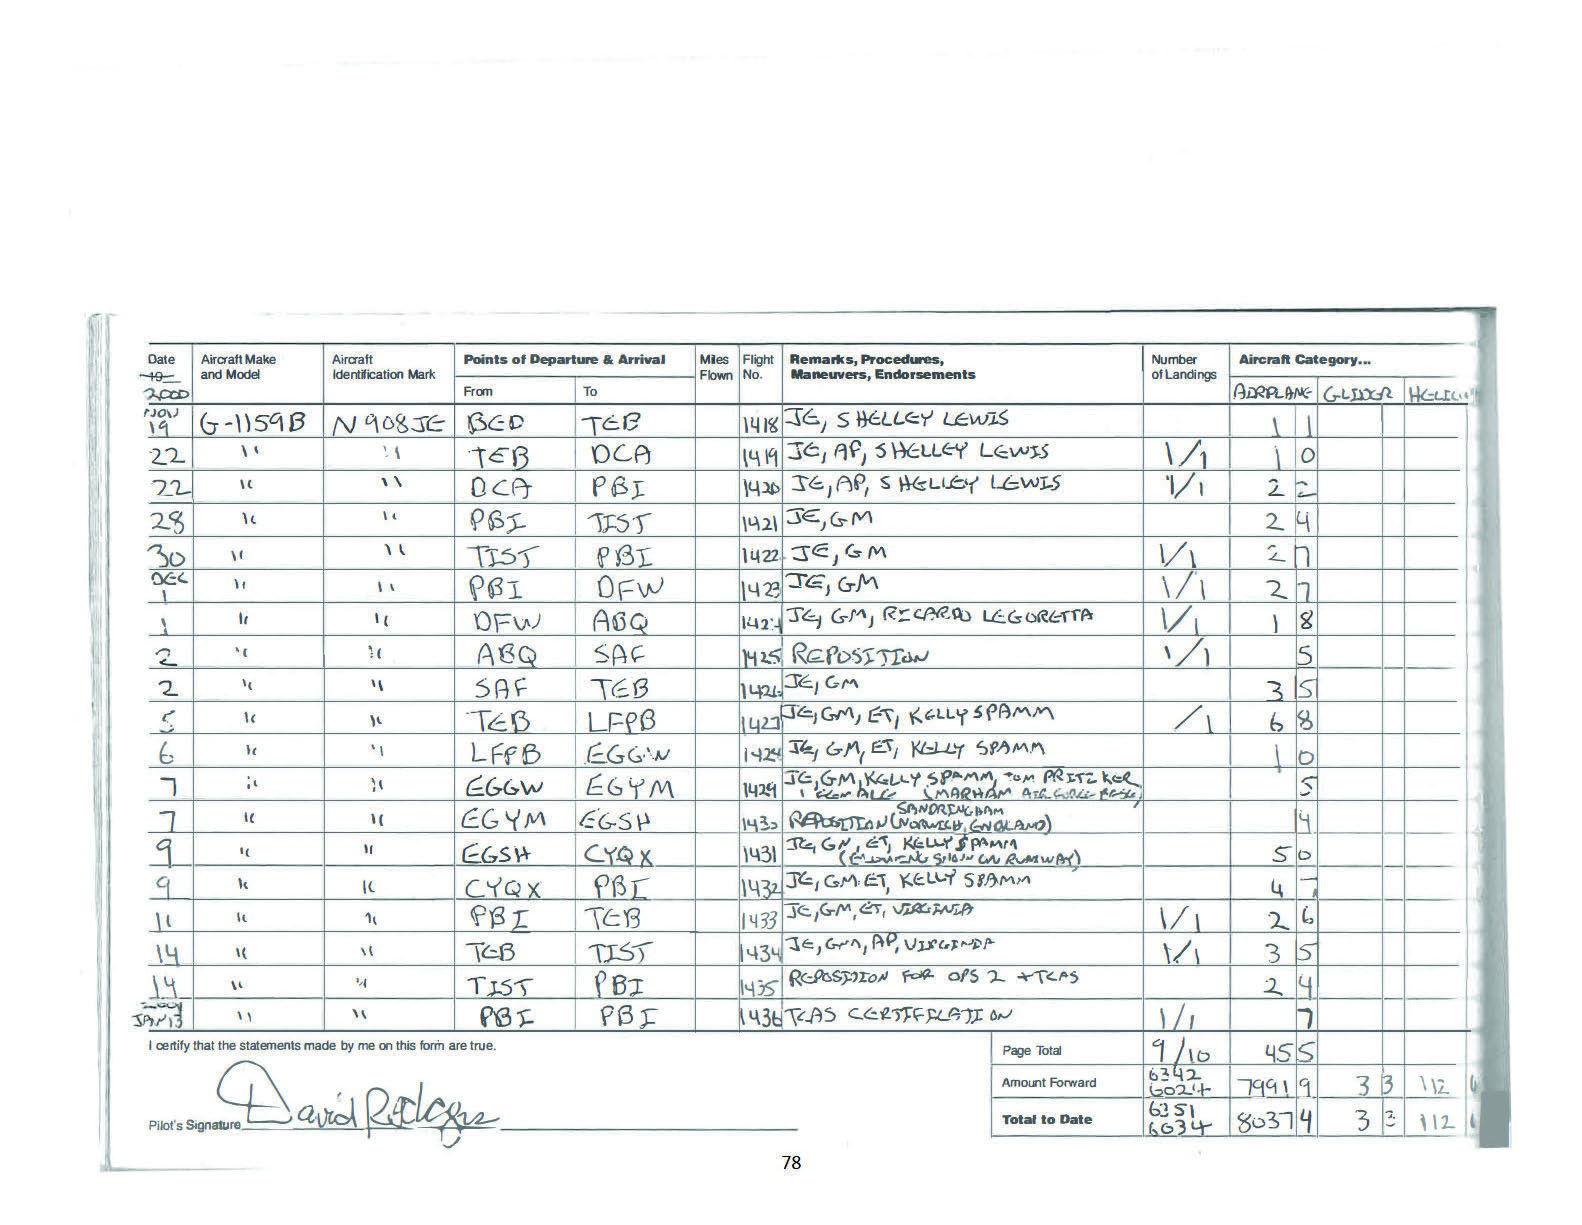 Date Aircraft Make Aircraft Points of Departure & Arrival Miles Flight Remarks, Procedures, Number Aircraft Category...
19 and Model Identification Mark From To Flown No. Maneuvers, Endorsements of Landings
2000 AIRPLANE GLIDER
NOV 19 G-1159B N908JE BED TEB 1418 JE, SHELLEY LEWIS 1 1
22 " " TEB DCA 1419 JE, AP, SHELLEY LEWIS 1/1 1 0
22 " " DCA PBI 1420 JE, AP, SHELLEY LEWIS 1/1 2 2
28 " " PBI TIST 1421 JE, GM 2 4
30 " " TIST PBI 1422 JE, GM 1/1 2 7
DEC 1 " " PBI DFW 1423 JE, GM 1/1 2 7
1 " " DFW ABQ 1424 JE, GM, RICARDO LEGORETTA 1/1 1 8
2 " " ABQ SAF 1425 REPOSITION 1/1 5
2 " " SAF TEB 1426 JE, GM 3 5
5 " " TEB LFPB 1427 JE, GM, ET, KELLY SPAMM /1 6 8
6 " " LFPB EGGW 1428 JE, GM, ET, KELLY SPAMM 1 0
7 " " EGGW EGYM 1429 JE, GM, KELLY SPAMM, TOM PRITZKER
1 FEMALE (MARHAM AIR FORCE BASE) 5
SANDRINGHAM
7 " " EGYM EGSH 1430 REPOSITION (NORWICH, ENGLAND) 4
9 " " EGSH CYQX 1431 JE, GM, ET, KELLY SPAMM 5 0
ON RUNWAY)
9 " " CYQX PBI 1432 JE, GM, ET, KELLY SPAMM 4 7
11 " " PBI TEB 1433 JE, GM, ET, VIRGINIA 1/1 2 6
14 " " TEB TIST 1434 JE, GM, AP, VIRGINIA 1/1 3 5
14 " " TIST PBI 1435 REPOSITION FOR OPS 2 + TCAS 2 4
2001
JAN 13 " " PBI PBI 1436 TCAS CERTIFICATION 1/1 7
I certify that the statements made by me on this form are true.
Page Total 9/10 45 5
Amount Forward 6342 6024 7991 9 3 3 112
Pilot's Signature David Rodgers
Total to Date 6351 6034 8037 4 3 3 112
78